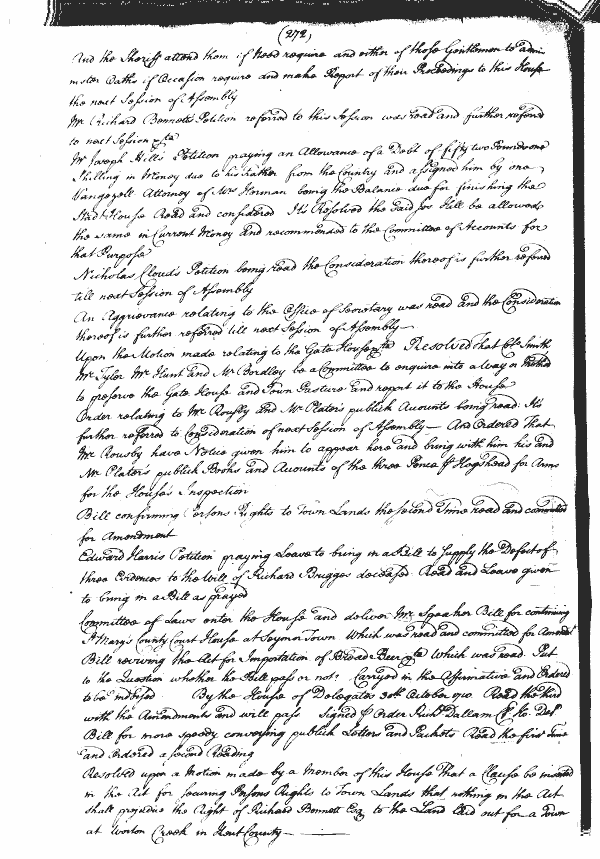 (272)
And the Sheriff attend them if Need require and either of those Gentlemen to admi
nister Oaths if Occasion require and make Report of their Proceedings to this House
the next Session of Assembly
Mr Richard Bennets Petition referred to this Session was read and further referred
to next Session
Mr Joseph Hill's Petition praying an Allowance of a Debt of fifty two Pounds one
Shilling in Money due to his Father from the Country and assigned him by one
Vangezell Attorney of Mrs Herman being the Balance due for finishing the
Stadt House Read and considered Its Resolved the said Jos Hill be allowed
the same in Current Money and recommended to the Committee of Accounts for
that Purpose
Nicholas Clouds Petition being read the Consideration thereof is further referred
till next Session of Assembly
An Aggrievance relating to the Office of Secretary was read and the Consideration
thereof is further referred till next Session of Assembly
Upon the Motion made relating to the Gate House Resolved That Col Smith
Mr Tyler Mr Hunt and Mr Bordley be a Committee to enquire into a way or Method
to preserve the Gate House and Town Pasture and report it to the House
Order relating to Mr Rousby and Mr Platers publick Accounts being read: Its
further referred to Consideration of next Session of Assembly And Ordered that
Mr Rousby have Notice given him to appear here and bring with him his and
Mr Plater's publick Books and Accounts of the three Pence P Hogshead for Arms
for the House's Inspection
Bill confirming Persons Rights to Town Lands the second Time read and committed
for Amendment
Edward Harris Petition praying Leave to bring in a Bill to supply the Defect of
three Evidences to the Will of Richard Brugges deceased Read and Leave given
to bring in a Bill as prayed
Committee of Laws enter the House and deliver Mr Speaker Bill for continuing
St Mary's County Court House at Seymor Town Which was read and committed for Amendt
Bill reviving the Act for Importation of Bread Beer &ta Which was read. Put
to the Question whether the Bill pass or not? Carryed in the Affirmative and Ordered
to be indorsed By the House of Delegates 30th October 1710. Read the third
with the Amendments and will pass Signed P Order Richd Dallam Cl Ho. Del
Bill for more speedy conveying publick Letters and Packets Read the first Time
and ordered a second Reading
Resolved upon a Motion made by a Member of this House That a Clause be inserted
in the Act for securing Persons Rights to Town Lands that nothing in the Act
shall prejudice the Right of Richard Bennett Esq to the Land laid out for a Town
at Worton Creek in Kent County